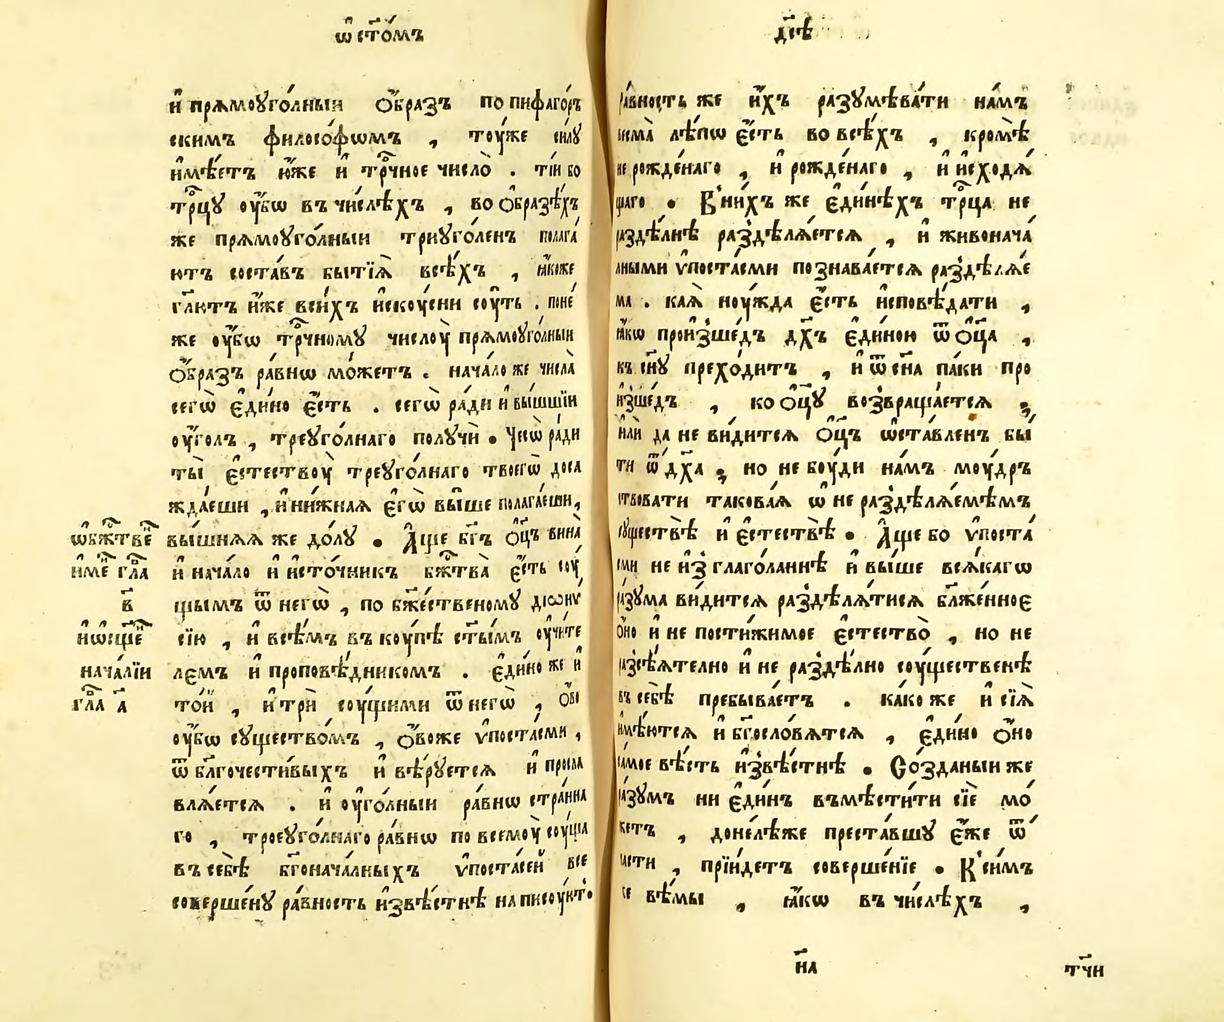 ѡ҆ ст҃ѡмъ
и҆ прѧмоꙋго́лныи ѻ҆́бразъ по пиѳаго́ръ
скимъ фило́софѡмъ , тоуже си́лꙋ
и҆мѣ́етъ ю҆́же и҆ трⷪ҇чное число̀ . ті́и бо
трⷪ҇цꙋ ᲂу҆́бѡ въ чи́слѣхъ , во ѻ҆́бразѣхъ
же прѧмоꙋго́лныи триꙋго́ленъ полага́
ютъ соста́въ бытїѧ̀ всѣ́хъ , ꙗ҆́коже
гл҃ютъ и҆́же въ си́хъ и҆скоу́сни соу́ть . поне́
же ᲂу҆́бѡ трⷪ҇чномꙋ числоу̀ прѧмоꙋго́лныи
ѻ҆́бразъ ра́внѡ мо́жетъ . нача́ло же числа̀
сегѡ̀ є҆ди́но є҆́сть . сегѡ̀ ра́ди и҆ вы́шшїи
ᲂу҆́голъ , треꙋго́лнаго получѝ • Чесѡ̀ ра́ди
ты̀ є҆стествоу̀ треꙋго́лнаго твоегѡ̀ доса
жда́еши , и҆ ни́жнаѧ є҆гѡ̀ вы́ше полага́еши ,
вы́шнѧѧ же до́лꙋ • А҆́ще бг҃ъ ѻ҆ц҃ъ вина̀
и҆ нача́ло и҆ и҆сто́чникъ бж҃тва̀ є҆́сть соу́
щымъ ѿ негѡ̀ , по бж҃е́ственомꙋ дїѡнѵ́
сїю , и҆ всѣ́мъ въ коу́пѣ ст҃ы́мъ ᲂу҆чи́те
лемъ и҆ проповѣ́дникомъ . є҆ди́но же и҆
то́и , и҆ трѝ соу́щими ѿ негѡ̀ , ѻ҆́во
ᲂу҆́бѡ сꙋщество́мъ , ѻ҆́воже ѵ҆поста́сми ,
ѿ бл҃гочести́выхъ и҆ вѣ́рꙋетсѧ и҆ просла
влѧ́етсѧ . и҆ ᲂу҆го́лныи ра́внѡ стра́нна
го , троеꙋго́лнаго ра́внѡ по всемоу̀ соу́ща
въ себѣ̀ бг҃онача́лныхъ ѵ҆поста́сей все
соверше́нꙋ ра́вность и҆звѣ́стнѣ написоу́етъ •
ѡ҆ бж҃твѣ
и҆ме́ гла
в҃
и҆ ѡ҆ сще
нача́лїи
гла а҃
дс҃іѐ
ра́вность же и҆́хъ разꙋмѣва́ти на́мъ
весма̀ лѣ́пѡ є҆́сть во всѣ́хъ , кромѣ̀
не рожде́наго , и҆ рожде́наго , и҆ и҆сходѧ́
щаго • В' ни́хъ же є҆ди́нѣхъ трⷪ҇ца не
раздѣ́лнѣ раздѣлѧ́етсѧ , и҆ живонача́
лными ѵ҆поста́сми познава́етсѧ раздѣлѧ́е
ма . ка́ѧ ноу́жда є҆́сть и҆сповѣ́дати ,
ꙗ҆́кѡ произше́дъ дх҃ъ є҆ди́ною ѿ ѻ҆ц҃а̀ ,
къ сн҃ꙋ прехо́дитъ , и҆ ѿ сн҃а па́ки про
и҆зше́дъ , ко ѻ҆ц҃ꙋ̀ возвраща́етсѧ ;
и҆лѝ да не ви́дитсѧ ѻ҆ц҃ъ ѡ҆ста́вленъ бы́
ти ѿ дх҃а ; но не боу́ди на́мъ моу́дръ
ствовати такова́ѧ ѡ҆ не раздѣлѧ́емѣмъ
сꙋществѣ̀ и҆ є҆стествѣ̀ • А҆́ще бо ѵ҆поста́
сми не и҆зглаго́ланнѣ и҆ вы́ше всѧ́кагѡ
ра́зꙋма ви́дитсѧ раздѣлѧ́тисѧ бл҃же́нноє
ѻ҆́но и҆ не пости́жимое є҆стество̀ , но не
разсѣѧ́телно и҆ не раздѣ́лно соу́щественѣ
въ себѣ̀ пребыва́етъ . ка́ко же и҆ сїѧ̀
и҆мѣ́ютсѧ и҆ бг҃осло́вѧтсѧ , є҆ди́но ѻ҆но̀
са́мое вѣ́сть и҆звѣ́стнѣ • Со́зданыи же
ра́зꙋмъ ни є҆ди́нъ въмѣсти́ти сїѐ мо́
жетъ , донелѣ́же преста́вшꙋ є҆́же ѿ
ча́сти , прїи́детъ соверше́нїе • К' си́мъ
же вѣ́мы , ꙗ҆́кѡ въ чи́слѣхъ ,
н҃а
тч҃и